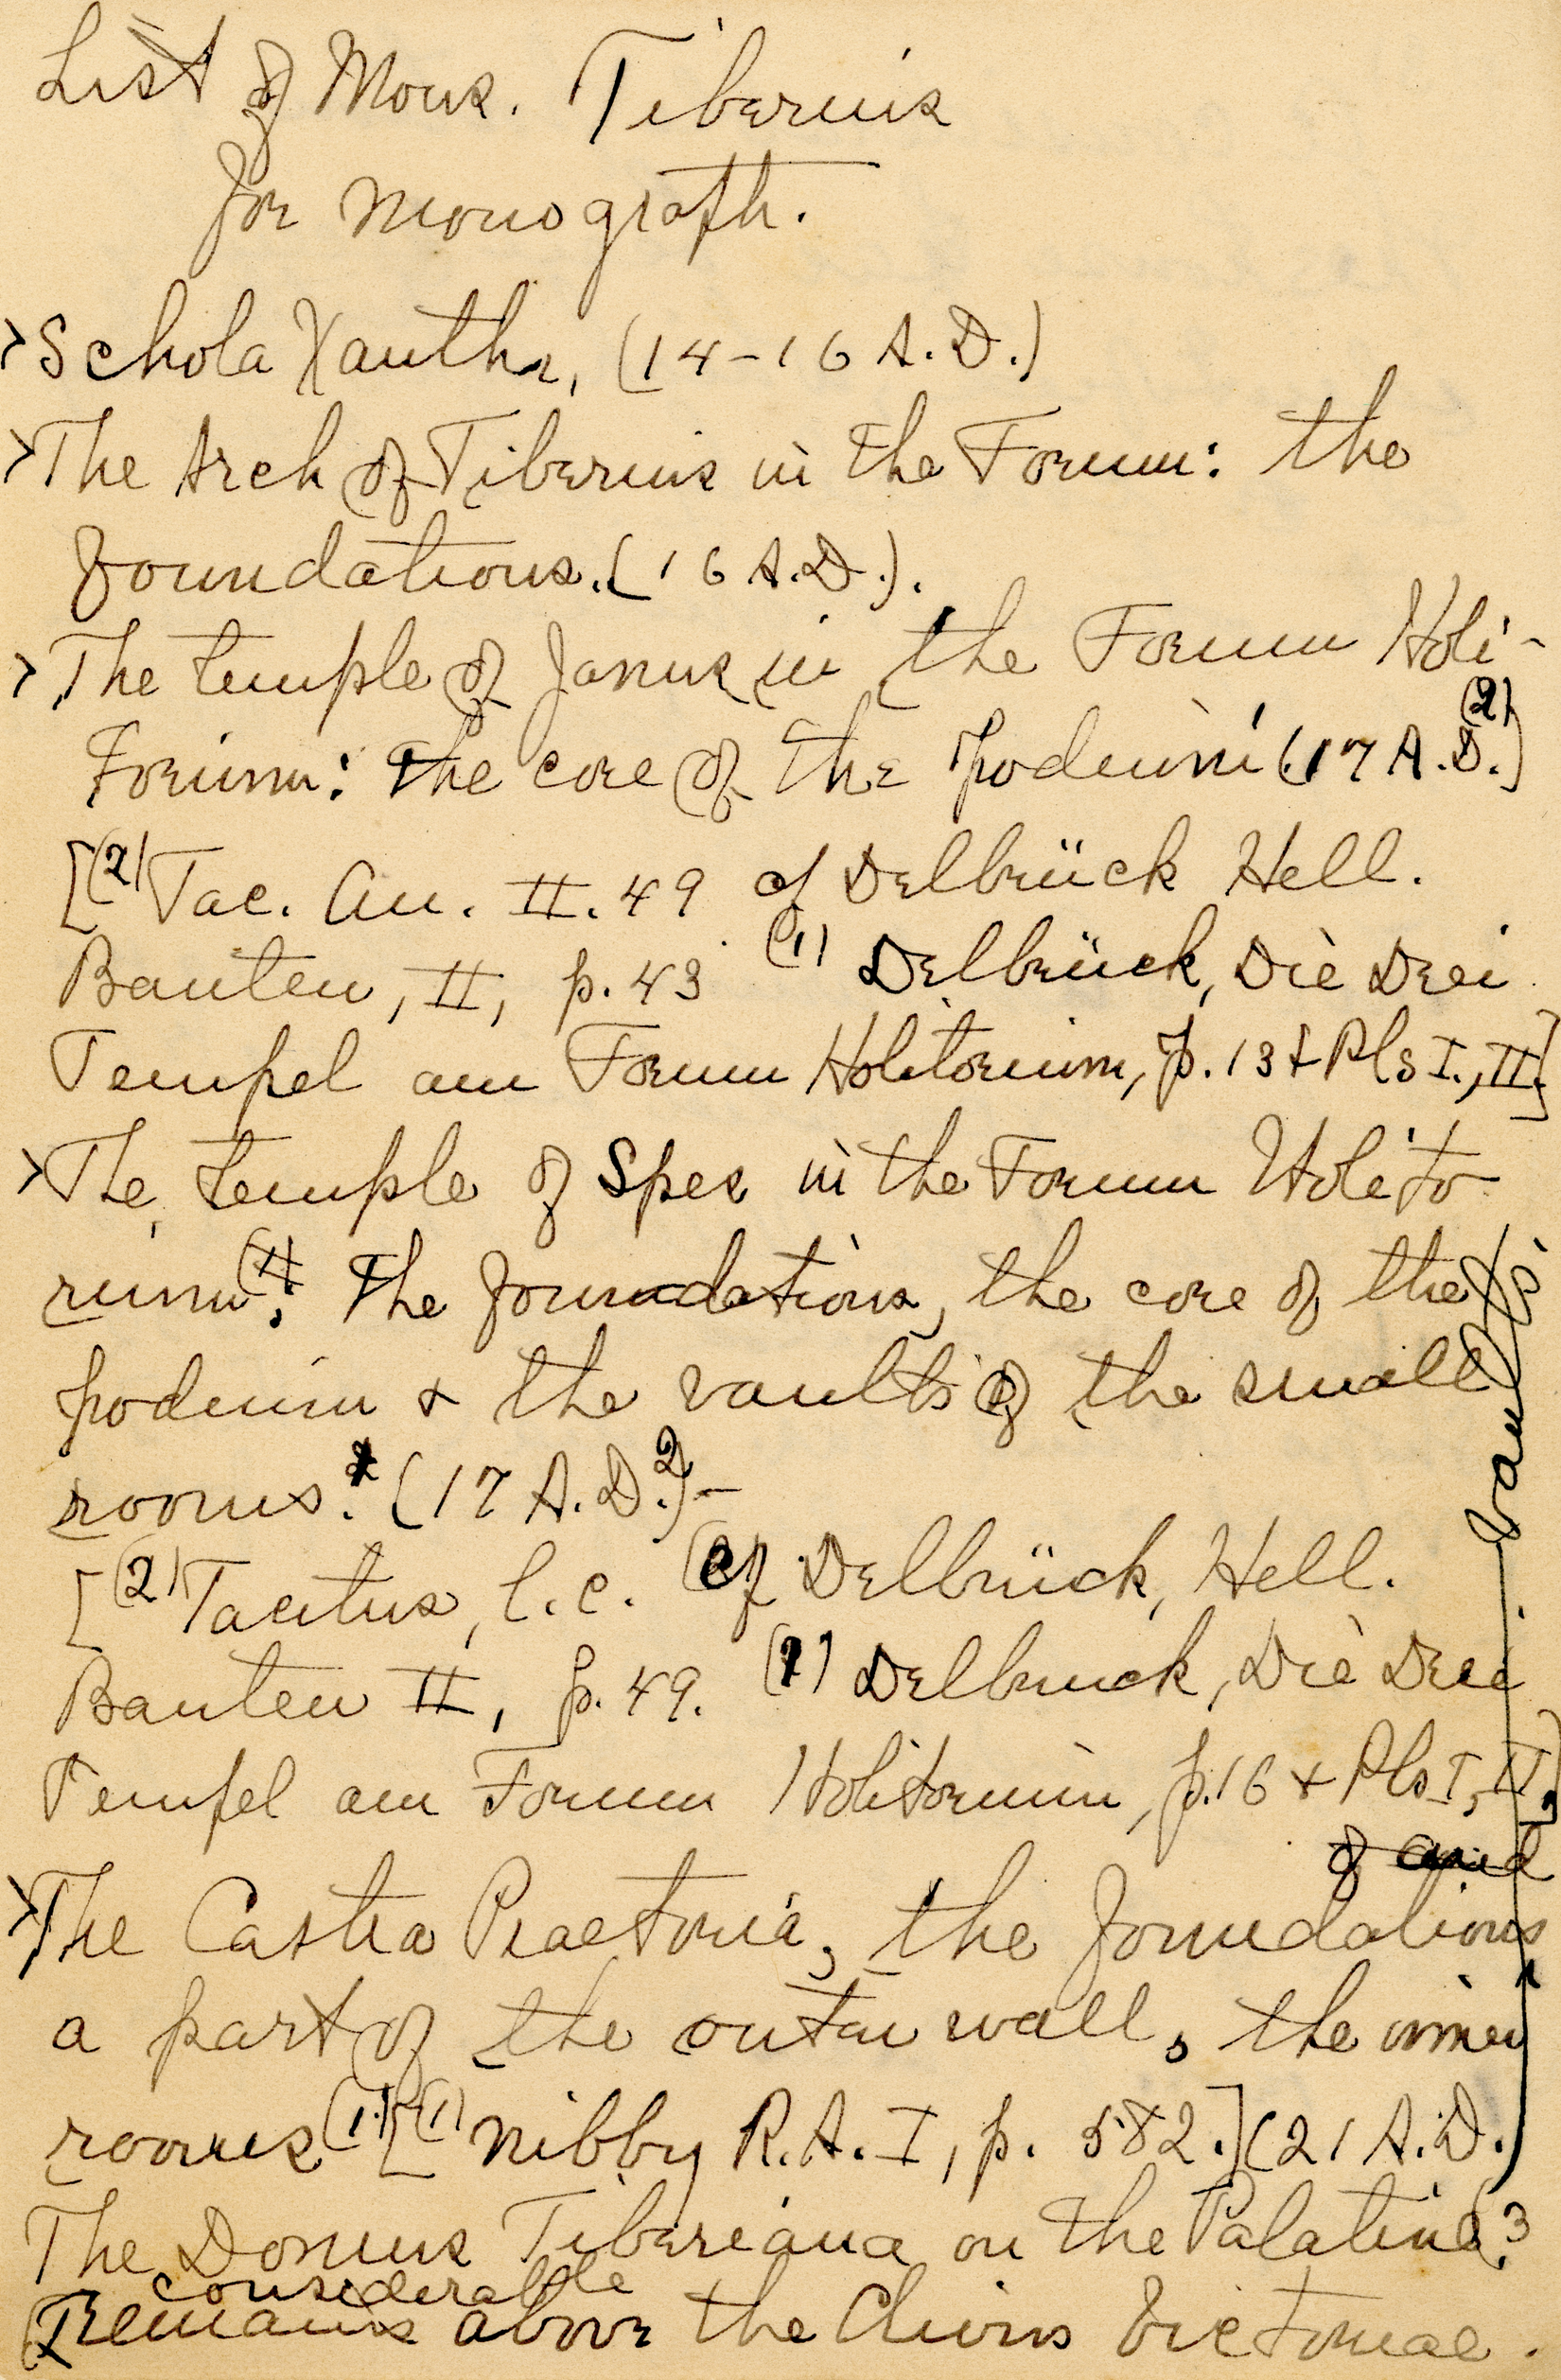 List of Mons. Tiberius
for monograph.
Schola Xantha, (14-16 A.D.)
The Arch of Tiberius in the Forum: the
foundations. (16 A.D.).
The temple of Janus in the Forum Holi-
Forium: The core of the podium (17 A.D.(2)]
[(2) Tac. An. II. 49 cf Delbrück Hell.
Bauten, II, p. 43 (1) Delbrück, Die Drei
Tempel am Forum Holitorium, p. 13 + Pls I., II]
The temple of Spes in the Forum Holito
rium(1): The foundations, the core of the
podium + the vaults of the small
rooms. (17 A.D.2)-
[(2) Tacitus, l.c. (cf Delbrück, Hell.
Bauten II, p. 49. (1) Delbruck, Die Drei
Tempel am Forum Holitorium, p. 16 + Pls I, II,]
of and
The Castra Praetoria, the foundations
a part of the outer wall, the inner
rooms(1) [(1) Nibby R.A. I, p. 582.] (21 A.D.)
The Domus Tiberiana on the Palatine(?
considerable
(Remains above the Clivus Victoriae.
vaults